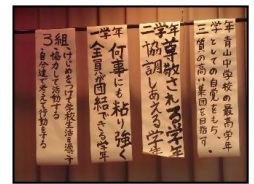 三学年
青山中学校の最高学年
としての自覚をもち、
質の高い集団を目指す
二学年
尊敬される学年
協調しあえる学年
一学年
何事にも粘り強く
全員が団結できる学年
3組
・けじめをつけて学校生活を過ごす
・協力して活動する
・自分達で考えて行動をする